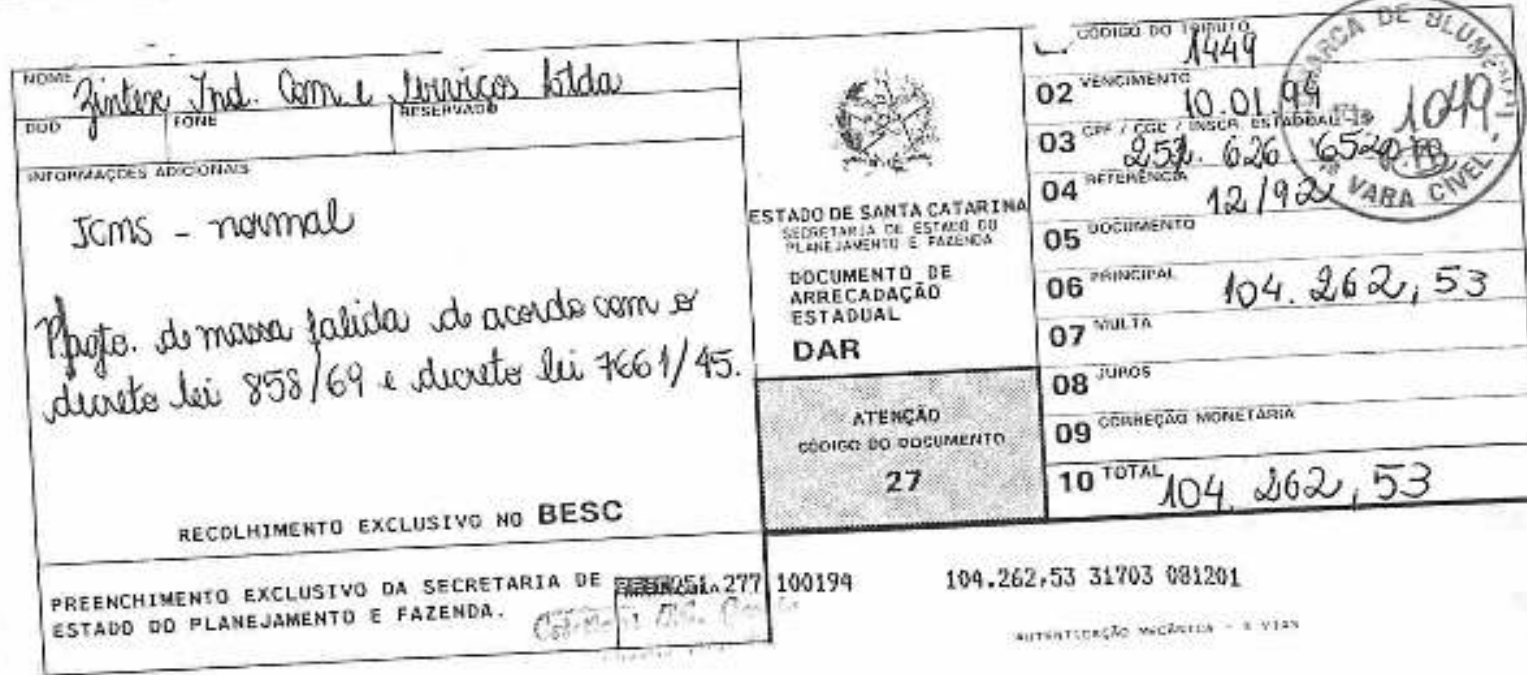 NOME Zintex Ind. Com e Serviços Ltda
DDD FONE RESERVADO
INFORMAÇÕES ADICIONAIS
ICMS - normal
Pagto. de massa falida de acordo com o
decreto lei 858/69 e decreto lei 7661/45.
RECOLHIMENTO EXCLUSIVO NO BESC
PREENCHIMENTO EXCLUSIVO DA SECRETARIA DE
ESTADO DO PLANEJAMENTO E FAZENDA.
ESTADO DE SANTA CATARINA
SECRETARIA DE ESTADO DO
PLANEJAMENTO E FAZENDA
DOCUMENTO DE
ARRECADAÇÃO
ESTADUAL
DAR
ATENÇÃO
CÓDIGO DO DOCUMENTO
27
CÓDIGO DO TRIBUTO
1449
02 VENCIMENTO
10.01.94
03 CPF / CGC / INSCR. ESTADUAL
251. 626. 6520
04 REFERÊNCIA
12/92
05 DOCUMENTO
06 PRINCIPAL 104.262,53
07 MULTA
08 JUROS
09 CORREÇÃO MONETÁRIA
10 TOTAL 104.262,53
MARCA DE BLUMENAU
1049
VARA CIVEL
051.277 100194 104.262,53 31703 081201
AUTENTICAÇÃO MECÂNICA - VIAS